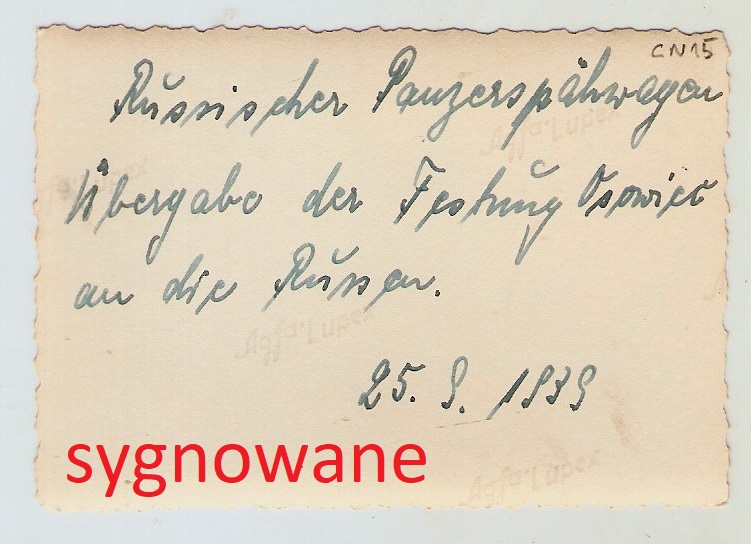 CN15
Russischer Panzerspähwagen
Übergabe der Festung Osowiec
an die Russen.
25. 9. 1939
sygnowane
Agfa-Lupex
Agfa-Lupex
Agfa-Lupex